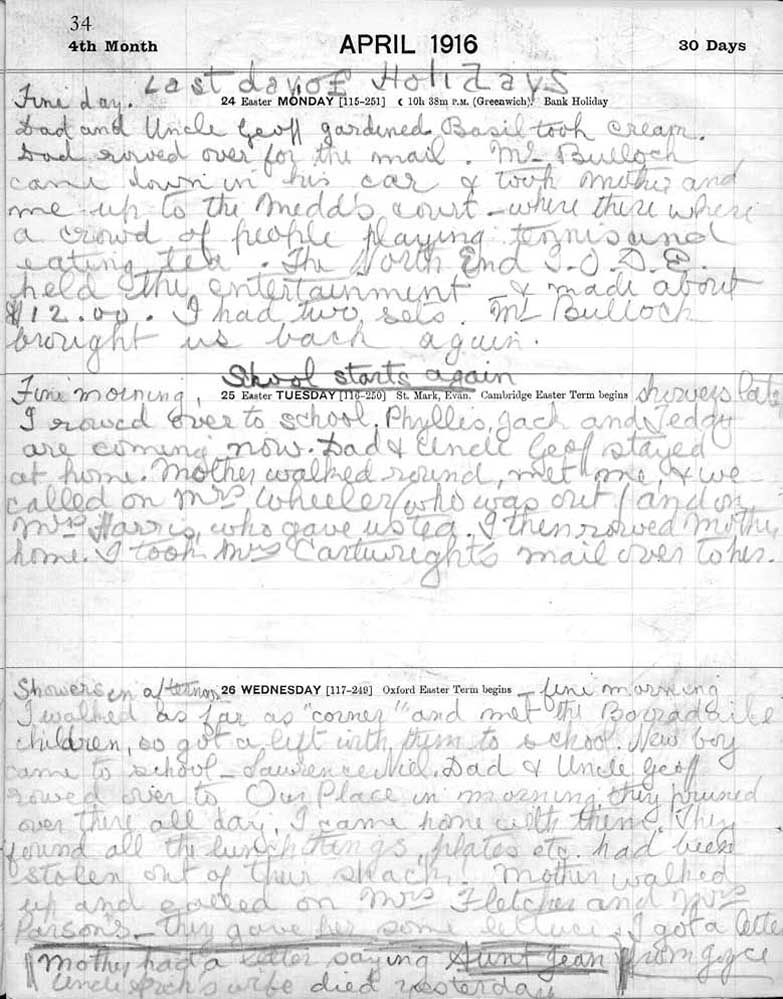 34
4th Month APRIL 1916 30 Days
Last day of Holidays
Fine day. 24 Easter MONDAY [115-251] ☾ 10h 38m P.M. (Greenwich). Bank Holiday
Dad and Uncle Geoff gardened. Basil took cream.
Dad rowed over for the mail. Mr Bulloch
came down in his car & took Mother and
me up to the Medd's court - where there where
a crowd of people playing tennis and
eating tea. The North End I.O.D.E.
held the entertainment & made about
$12.00. I had two sets. Mr Bullock
brought us back again.
Skool starts again
Fine morning, 25 Easter TUESDAY [116-250] St. Mark, Evan. Cambridge Easter Term begins showers late
I rowed over to school. Phyllis, Jack and Teddy
are coming now. Dad & Uncle Geof stayed
at home. Mother walked round, met me, & we
called on Mrs Wheeler (who was out) and on
Mrs Harris, who gave us tea. I then rowed Mother
home. I took Mrs Cartwright's mail over to her.
Showers in afternoon 26 WEDNESDAY [117-249] Oxford Easter Term begins - fine morning
I walked as far as "corner" and met the Borradaile
children, so got a lift with them to school. New boy
came to school - Lawrence Niel. Dad & Uncle Geoff
rowed over to Our Place in morning, they pruned
over there all day. I came home with them. They
found all the lunch things, plates etc. had been
stolen out of their shack. Mother walked
up and called on Mrs Fletcher and Mrs
Parsons - they gave her some lettuce. I got a letter
from Joyce
Mother had a letter saying Aunt Jean
Uncle wife died yesterday